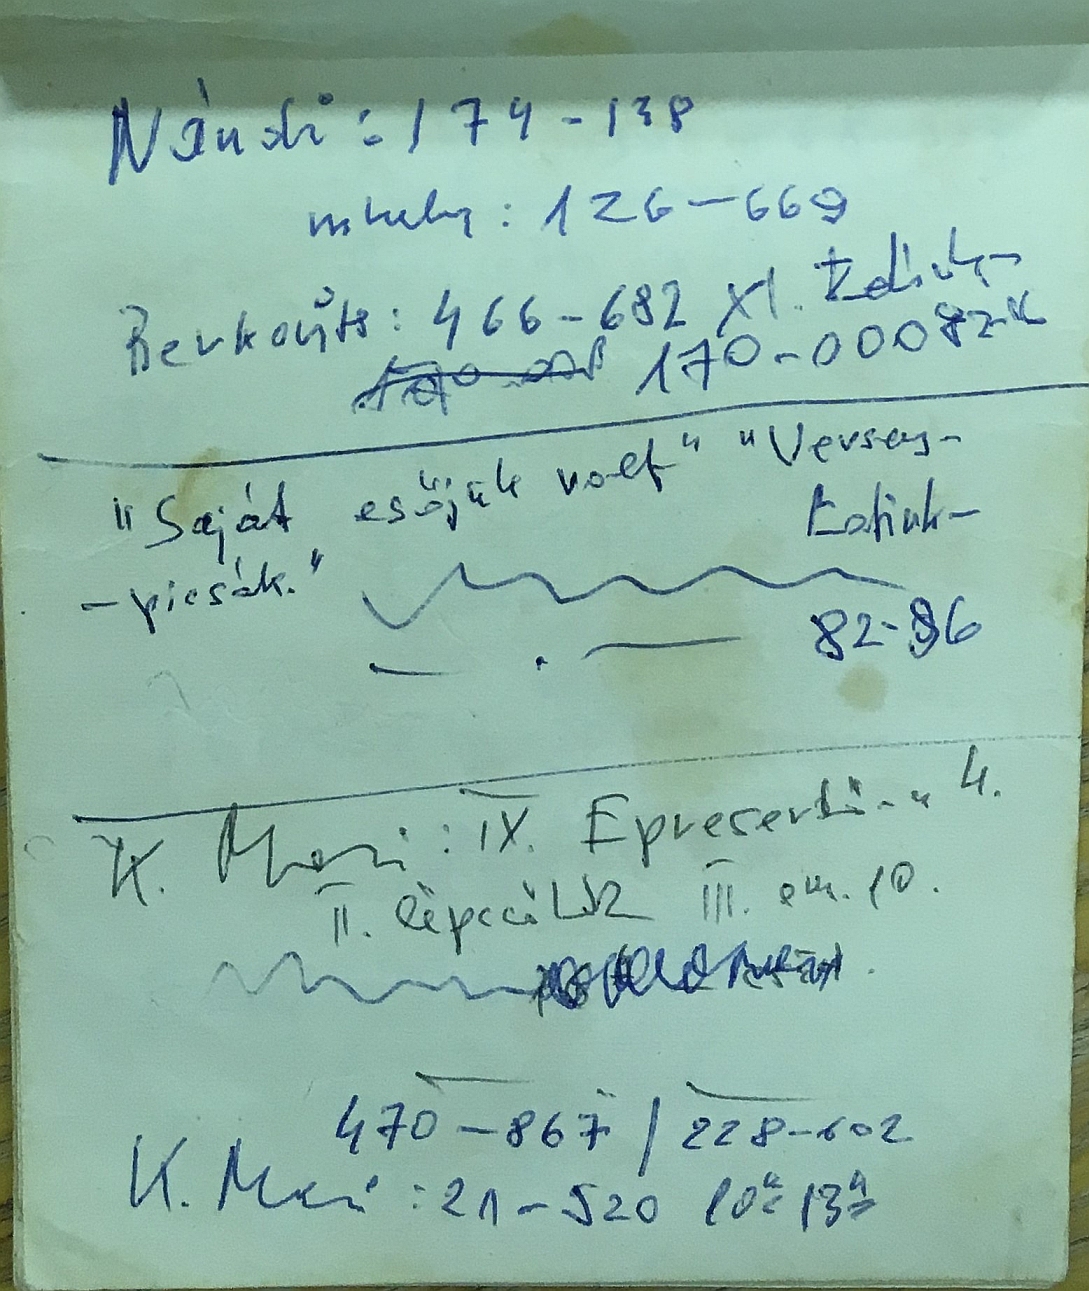 Nándi: 174-138
mhely: 126-669
Berkovits: 466-682 XI.
170-000 82-96
"Saját esőjük volt" "Versey-
-picsák."
82-96
K. Mari: IX. Epreserdő u 4.
II. lépcsőház III. em. 10.
470-867 / 228-602
K. Mari: 21-520 10h 13h